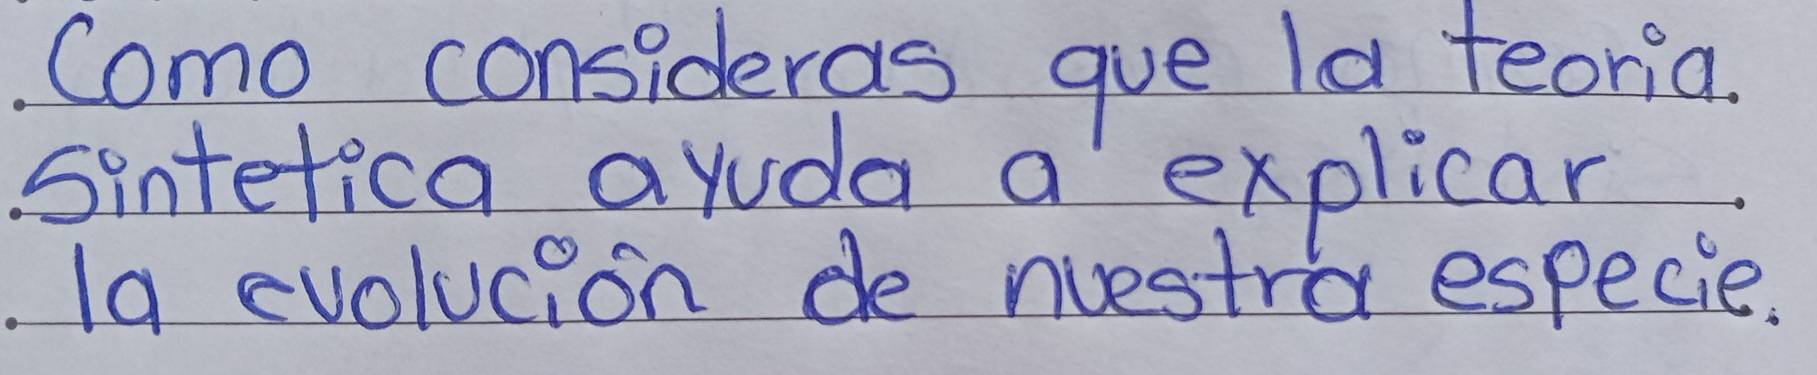 Como consideras que la teoria.
Sintetica ayuda a explicar
la evolución de nuestra especie.